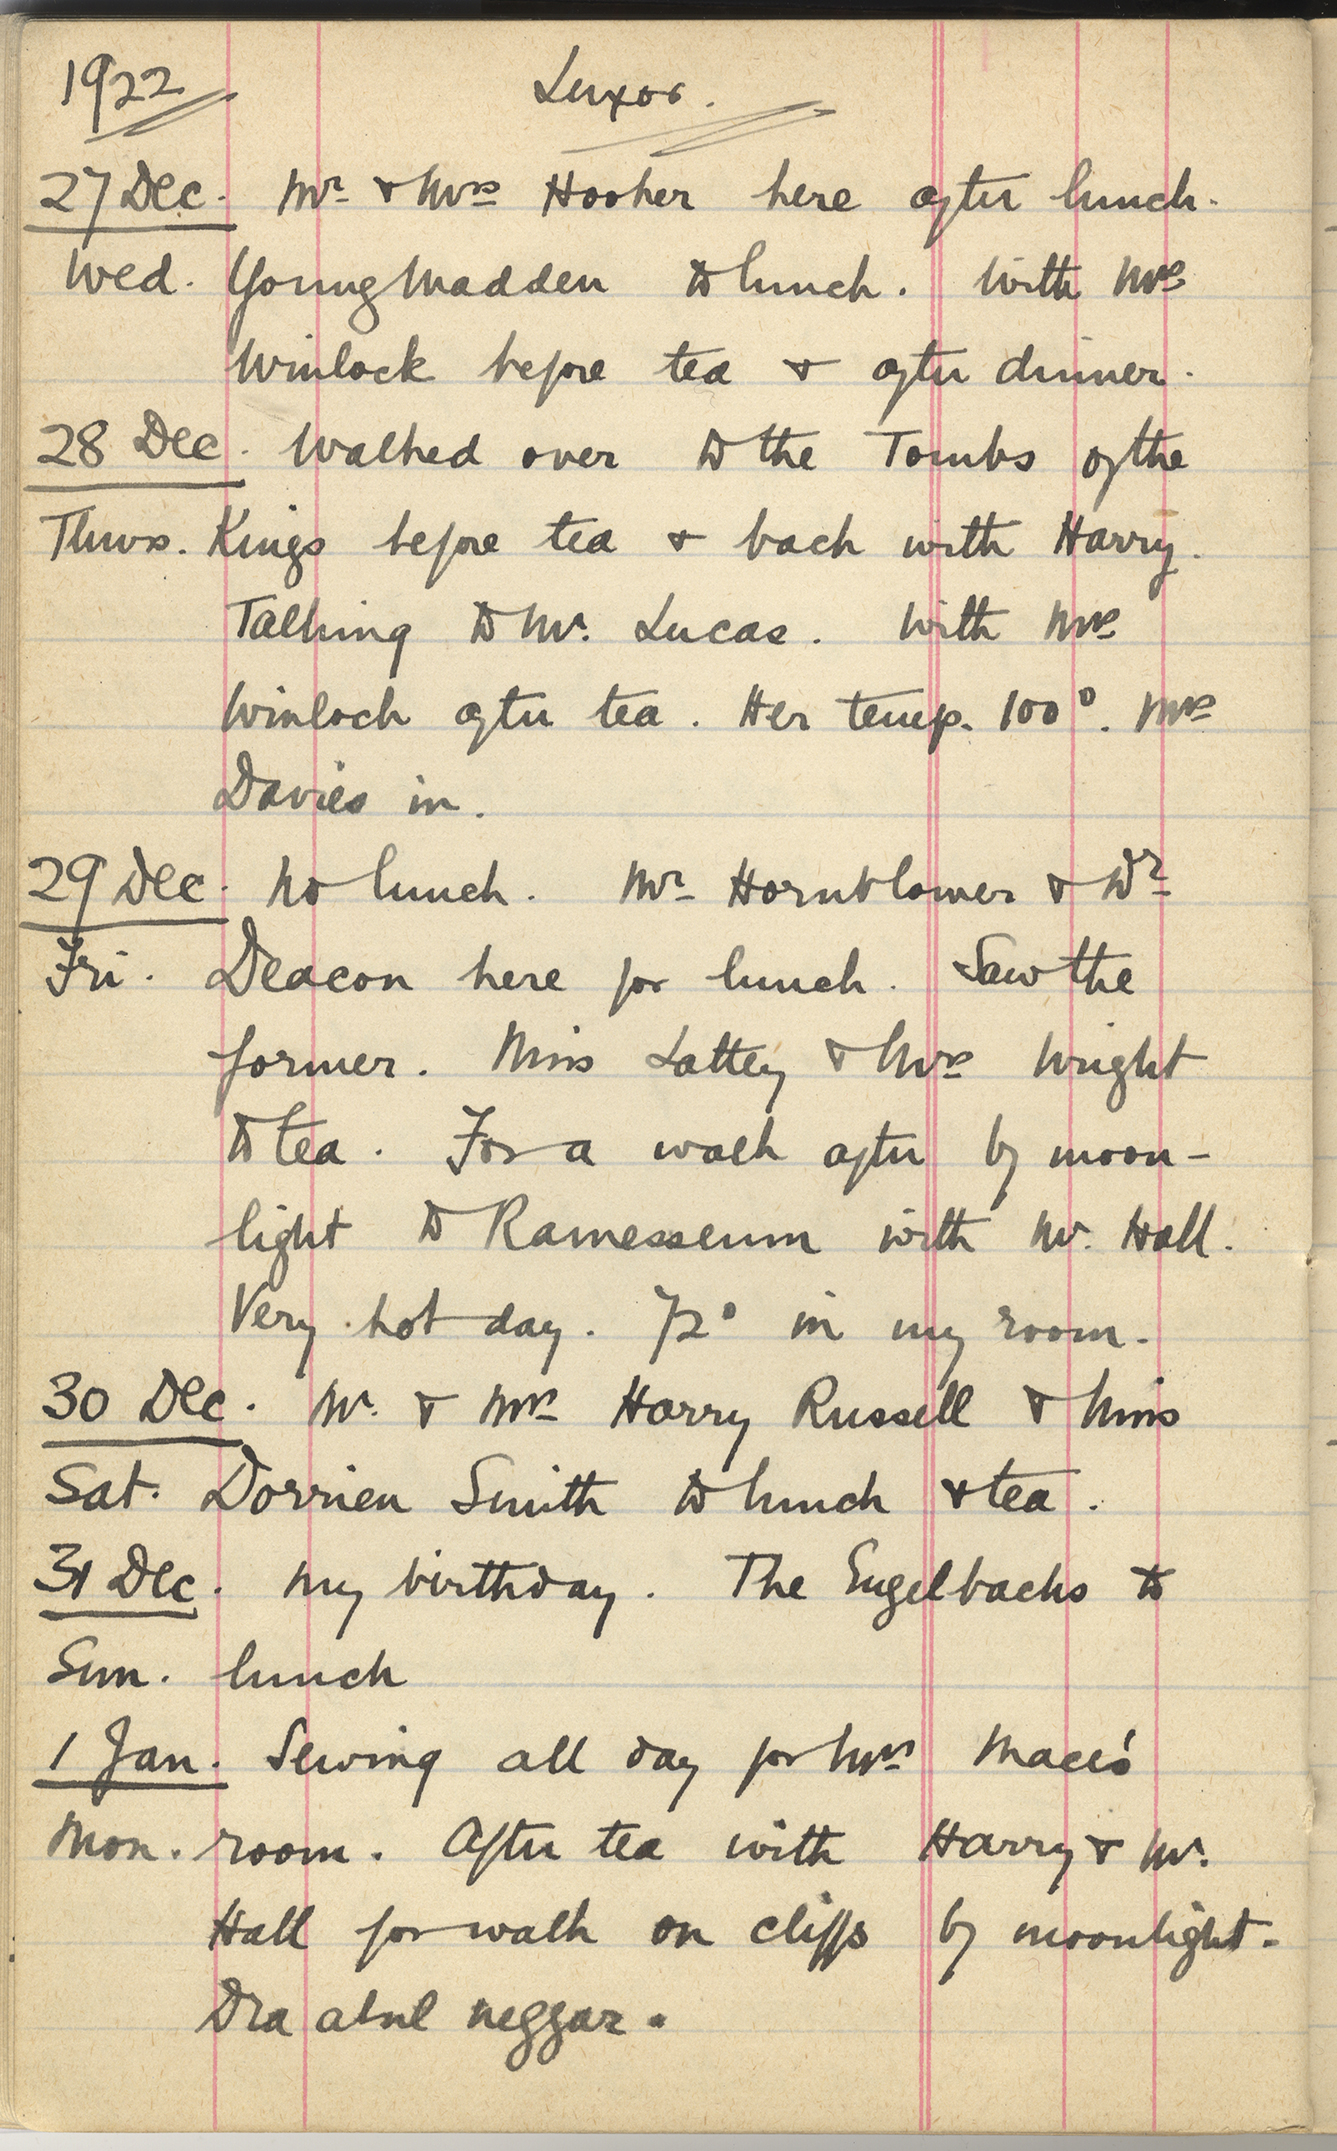 1922 Luxor.
27 Dec. Mr & Mrs Hooker here after lunch.
Wed. Young Madden to lunch. With Mrs
Winlock before tea & after dinner.
28 Dec. Walked over to the Tombs of the
Thurs. Kings before tea & back with Harry.
Talking to Mr. Lucas. With Mrs
Winlock after tea. Her temp. 100°. Mrs
Davies in.
29 Dec. No lunch. Mr Hornblower & Dr
Fri. Deacon here for lunch. Saw the
former. Miss Lattey & Mrs Wright
to tea. For a walk after by moon-
light to Ramesseum with Mr. Hall.
Very hot day. 72° in my room.
30 Dec. Mr. & Mrs Harry Russell & Miss
Sat. Dorrien Smith to lunch & tea.
31 Dec. My birthday. The Engelbachs to
Sun. lunch
1 Jan. Sewing all day for Mrs Mace's
Mon. room. After tea with Harry & Mr.
Hall for walk on cliffs by moonlight.
Dra abul neggar.